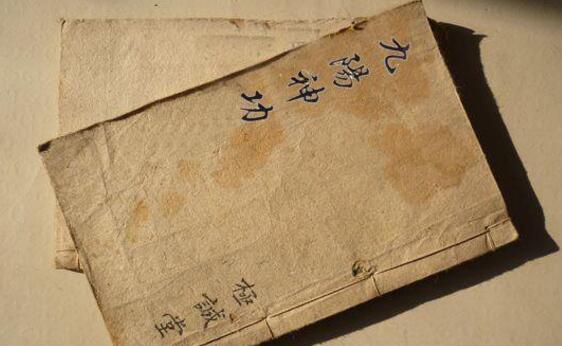 九陽神功
極誠堂